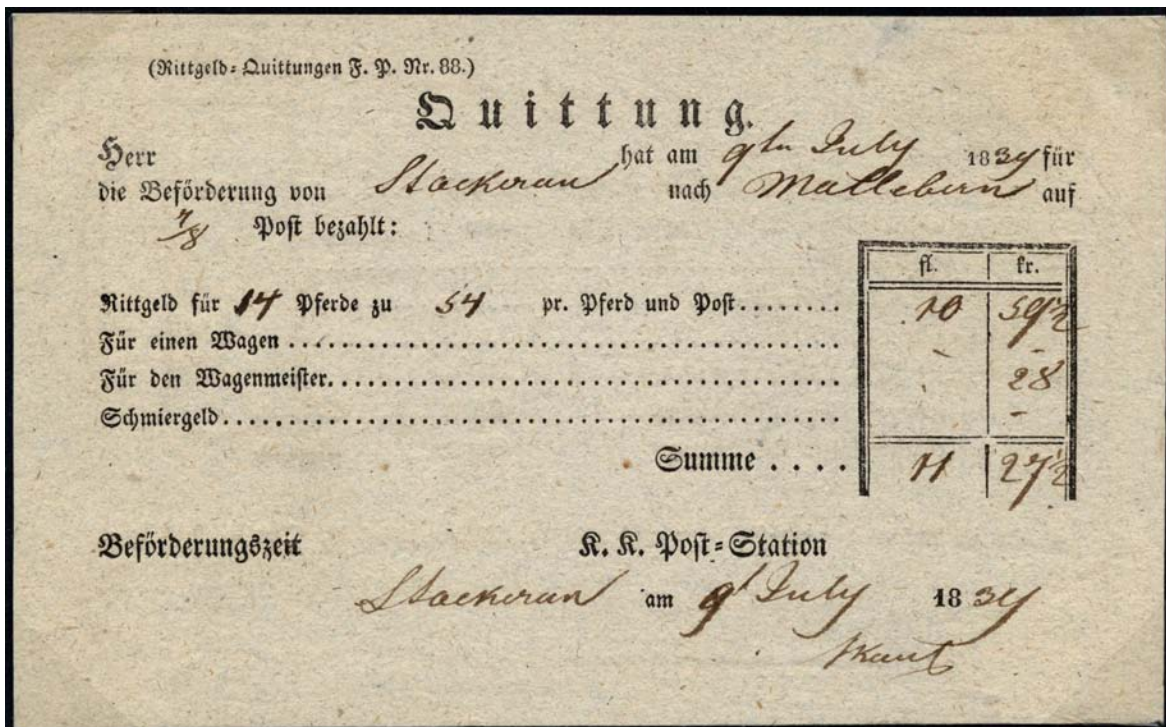 (Rittgeld-Quittungen F. P. Nr. 88.)
Quittung.
Herr hat am 9ten July 1834 für
die Beförderung von Stockerau nach Mallebern auf
7/8 Post bezahlt:
fl. kr.
Rittgeld für 14 Pferde zu 54 pr. Pferd und Post........ 10 59 1/2
Für einen Wagen ........ - -
Für den Wagenmeister........ - 28
Schmiergeld........ -
Summe .... 11 27 1/2
Beförderungszeit K. K. Post-Station
Stockerau am 9t July 1834